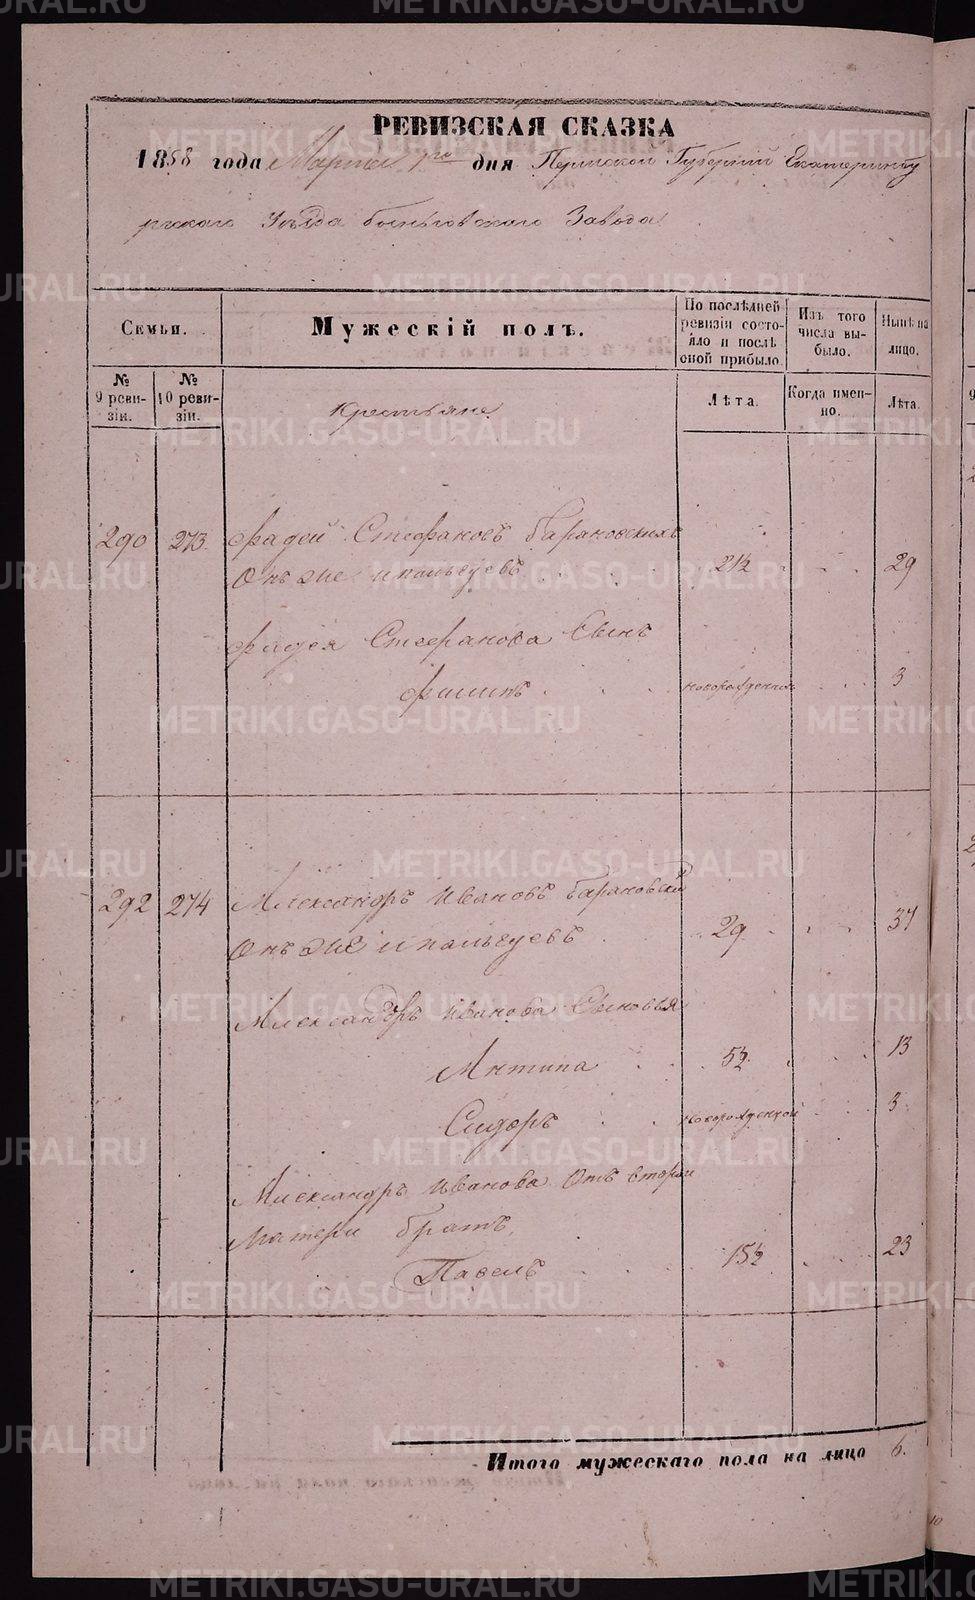 РЕВИЗСКАЯ СКАЗКА
1858 года Марта 1го дня Пермской Губерніи Екатеринбу
ргскаго Уѣзда Быньговскаго Завода
Семьи.
Мужескій полъ.
По послѣдней ревизіи состояло и послѣ оной прибыло.
Изъ того числа выбыло.
Нынѣ на лицо.
№ 9 ревизіи.
№ 10 ревизіи.
Крестьяне
Лѣта.
Когда именно.
Лѣта.
290 273 Фадей Стефановъ Барановскихъ
Онъ же и Пальцевъ 21½ 29
Фадея Стефанова Сынъ
Филипъ новорожденной 3
292 274 Александръ Ивановъ Барановской
Онъ же и Пальцевъ 29 37
Александръ Иванова Сыновья
Антипа 5½ 13
Сидоръ новорожденной 3
Александръ Иванова Отъ второй
матери братъ,
Павелъ 15½ 23
Итого мужескаго пола на лицо 6.
METRIKI.GASO-URAL.RU